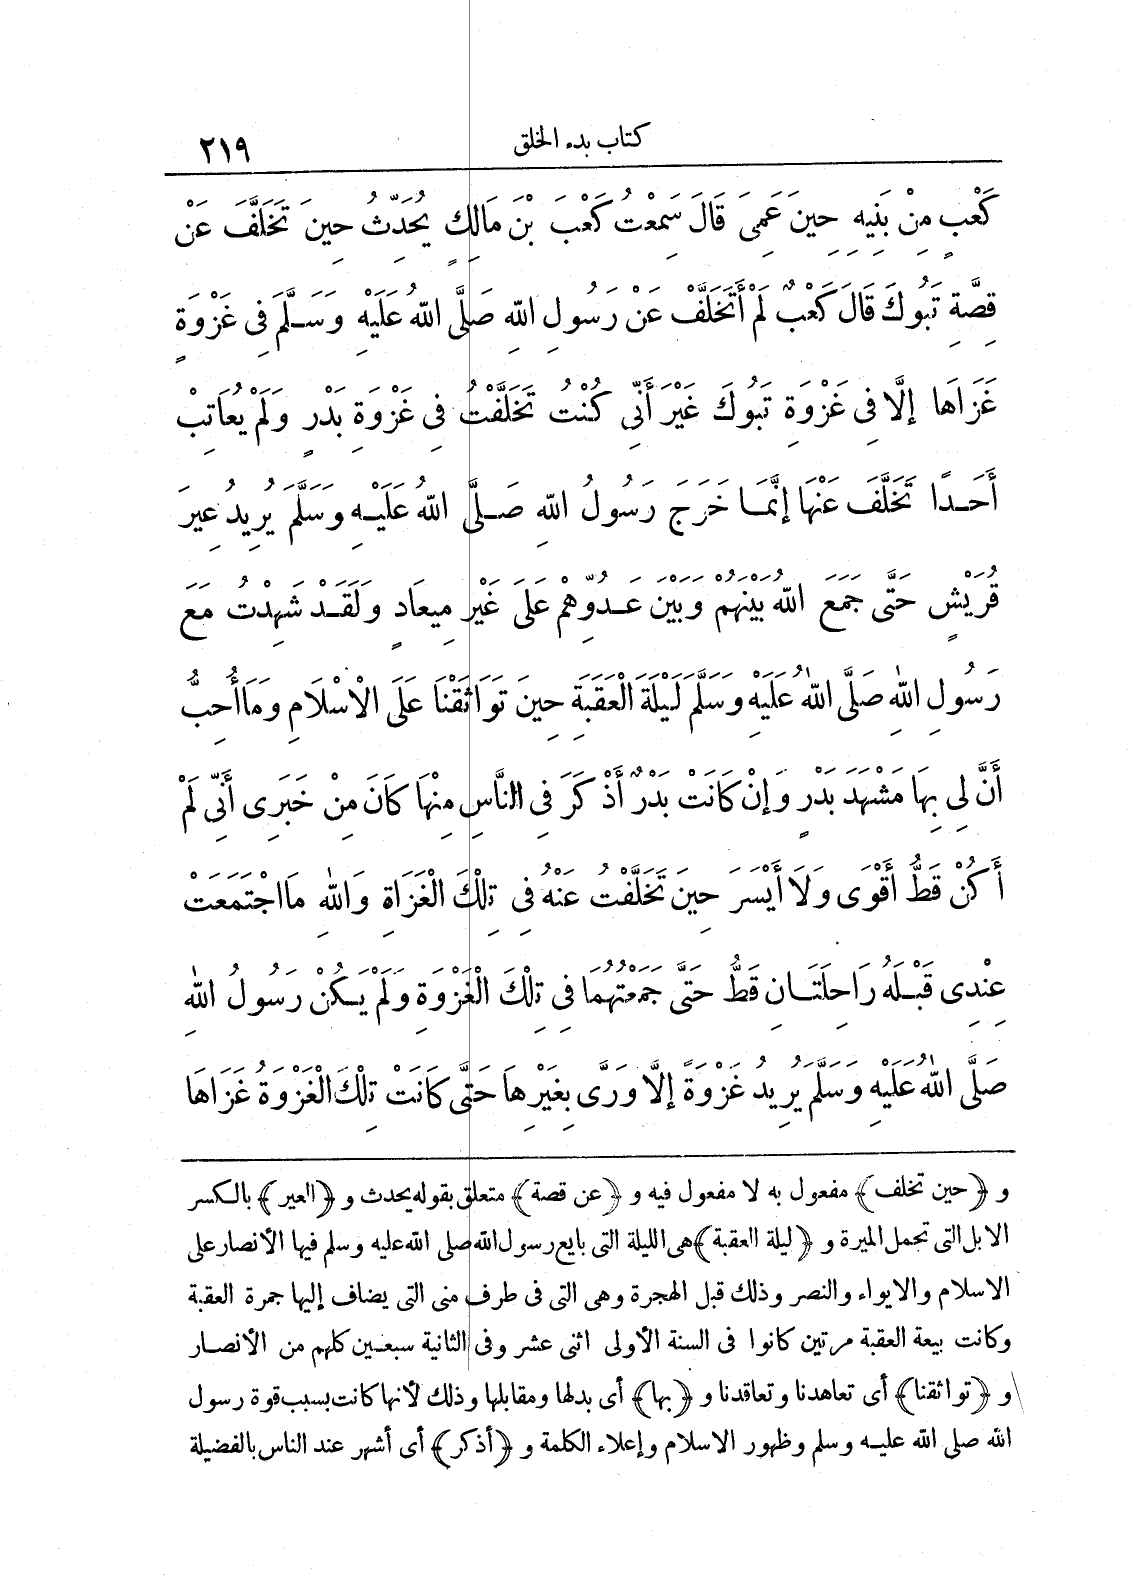 كتاب بدء الخلق ٢١٩
كَعْبٍ مِنْ بَنِيهِ حِينَ عَمِيَ قَالَ سَمِعْتُ كَعْبَ بْنَ مَالِكٍ يُحَدِّثُ حِينَ تَخَلَّفَ عَنْ
قِصَّةِ تَبُوكَ قَالَ كَعْبٌ لَمْ أَتَخَلَّفْ عَنْ رَسُولِ اللهِ صَلَّى اللهُ عَلَيْهِ وَسَلَّمَ فِى غَزْوَةٍ
غَزَاهَا إِلَّا فِى غَزْوَةِ تَبُوكَ غَيْرَ أَنِّى كُنْتُ تَخَلَّفْتُ فِى غَزْوَةِ بَدْرٍ وَلَمْ يُعَاتِبْ
أَحَدًا تَخَلَّفَ عَنْهَا إِنَّمَا خَرَجَ رَسُولُ اللهِ صَلَّى اللهُ عَلَيْهِ وَسَلَّمَ يُرِيدُ عِيرَ
قُرَيْشٍ حَتَّى جَمَعَ اللهُ بَيْنَهُمْ وَبَيْنَ عَدُوِّهِمْ عَلَى غَيْرِ مِيعَادٍ وَلَقَدْ شَهِدْتُ مَعَ
رَسُولِ اللهِ صَلَّى اللهُ عَلَيْهِ وَسَلَّمَ لَيْلَةَ الْعَقَبَةِ حِينَ تَوَاثَقْنَا عَلَى الْاسْلَامِ وَمَا أُحِبُّ
أَنَّ لِى بِهَا مَشْهَدَ بَدْرٍ وَإِنْ كَانَتْ بَدْرٌ أَذْكَرَ فِى النَّاسِ مِنْهَا كَانَ مِنْ خَبَرِى أَنِّى لَمْ
أَكُنْ قَطُّ أَقْوَى وَلَا أَيْسَرَ حِينَ تَخَلَّفْتُ عَنْهُ فِى تِلْكَ الْغَزَاةِ وَاللهِ مَا اجْتَمَعَتْ
عِنْدِى قَبْلَهُ رَاحِلَتَانِ قَطُّ حَتَّى جَمَعْتُهُمَا فِى تِلْكَ الْغَزْوَةِ وَلَمْ يَكُنْ رَسُولُ اللهِ
صَلَّى اللهُ عَلَيْهِ وَسَلَّمَ يُرِيدُ غَزْوَةً إِلَّا وَرَّى بِغَيْرِهَا حَتَّى كَانَتْ تِلْكَ الْغَزْوَةُ غَزَاهَا
و ﴿حين تخلف﴾ مفعول به لا مفعول فيه و ﴿عن قصة﴾ متعلق بقوله يحدث و ﴿العير﴾ بالكسر
الابل التى تحمل الميرة و ﴿ليلة العقبة﴾ هى الليلة التى بايع رسول الله صلى الله عليه وسلم فيها الأنصار على
الاسلام والايواء والنصر وذلك قبل الهجرة وهى التى فى طرف منى التى يضاف إليها جمرة العقبة
وكانت بيعة العقبة مرتين كانوا فى السنة الأولى اثنى عشر وفى الثانية سبعين كلهم من الأنصار
و ﴿تواثقنا﴾ أى تعاهدنا وتعاقدنا و ﴿بها﴾ أى بدلها ومقابلها وذلك لأنها كانت بسبب قوة رسول
الله صلى الله عليه وسلم وظهور الاسلام وإعلاء الكلمة و ﴿أذكر﴾ أى أشهر عند الناس بالفضيلة